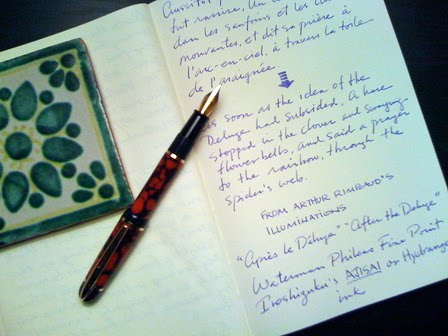 fut rassise, Un
dan les sanfoins et les
mouvantes, et dit sa prière à
l'arc-en-ciel, à travers la toile
de l'araignée.
as soon as the idea of the
Deluge had Subsided, A hare
stopped in the clover and swaying
flowerbells, and said a prayer
to the rainbow, through the
spider's web.
FROM ARTHUR RIMBAUD'S
ILLUMINATIONS
"Après le Déluge" "After the Deluge"
Waterman Phileas Fine Point
Iroshizuku's ATISAI or Hydrangea
ink